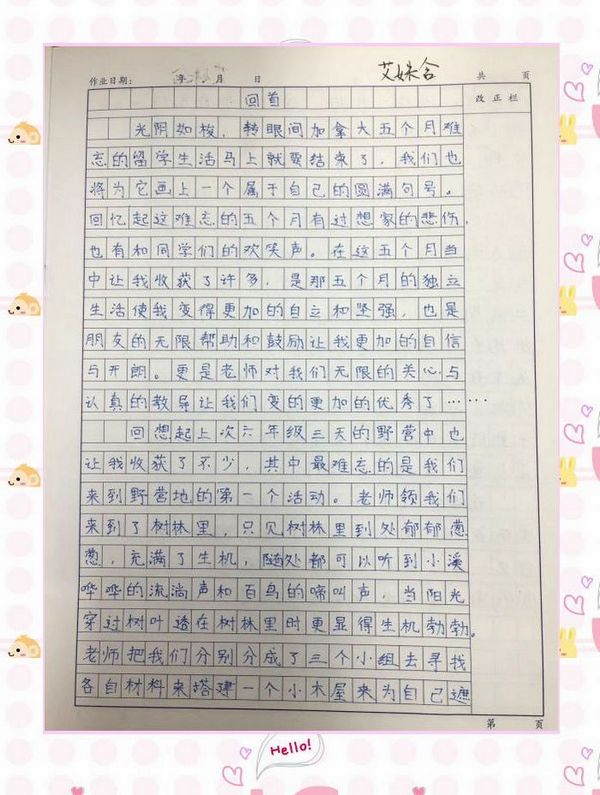 艾姝含
作业日期： 年 月 日 共 页
改正栏
回首
光阴如梭，转眼间加拿大五个月难
忘的留学生活马上就要结束了，我们也
将为它画上一个属于自己的圆满句号。
回忆起这难忘的五个月有过想家的悲伤，
也有和同学们的欢笑声。在这五个月当
中让我收获了许多，是那五个月的独立
生活使我变得更加的自立和坚强，也是
朋友的无限帮助和鼓励让我更加的自信
与开朗。更是老师对我们无限的关心与
认真的教导让我们变的更加的优秀了……
回想起上次六年级三天的野营中也
让我收获了不少，其中最难忘的是我们
来到野营地的第一个活动。老师领我们
来到了树林里，只见树林里到处郁郁葱
葱，充满了生机，随处都可以听到小溪
哗哗的流淌声和百鸟的啼叫声，当阳光
穿过树叶透在树林里时更显得生机勃勃。
老师把我们分别分成了三个小组去寻找
各自材料来搭建一个小木屋来为自己遮
第 页
Hello!